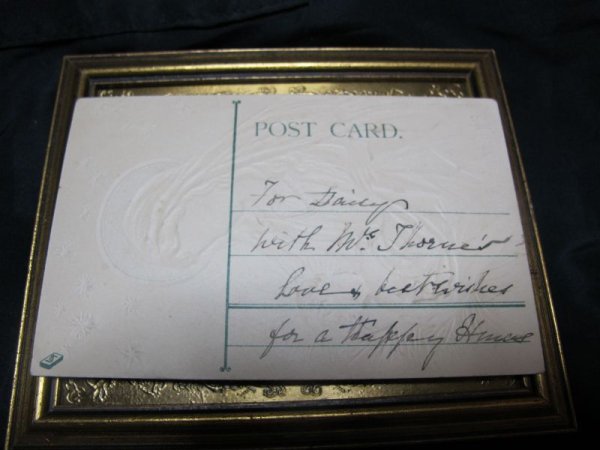 POST CARD.
For Daisy
with Mrs. Thorne's
love & best wishes
for a Happy